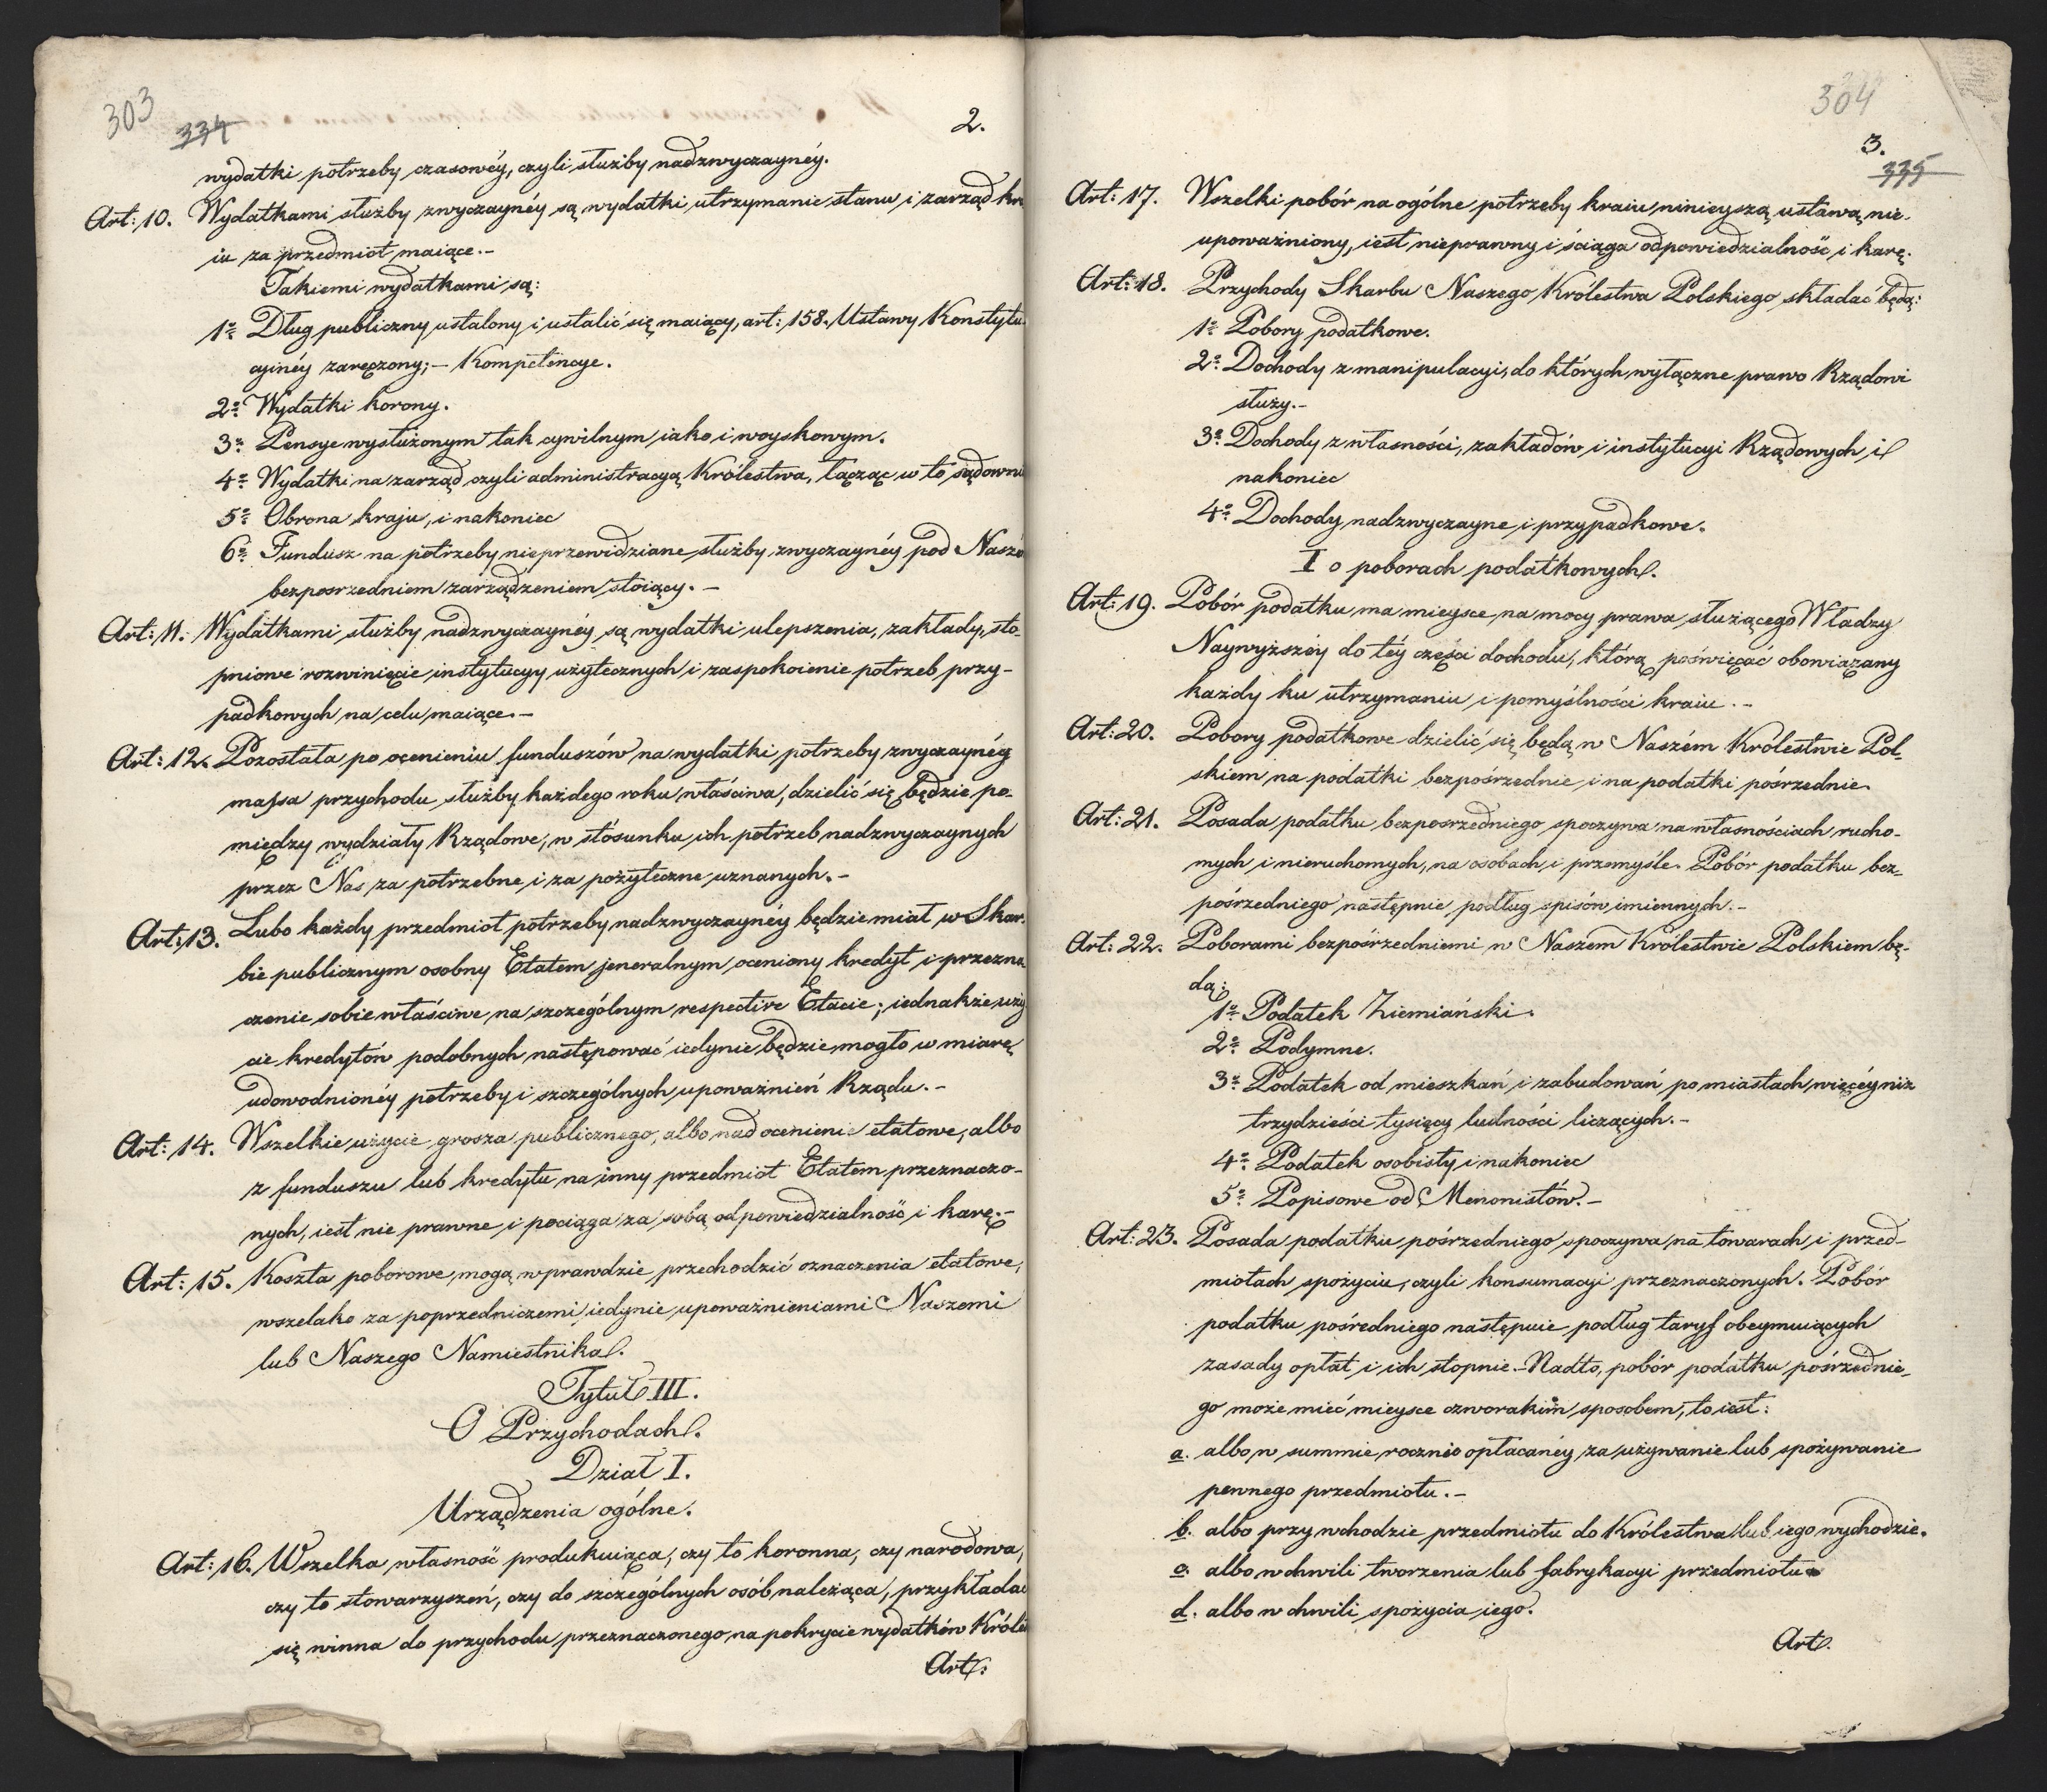 303
334
2.
wydatki potrzeby czasowéy, czyli służby nadzwyczaynéy.
Art: 10. Wydatkami służby zwyczaynéy są wydatki utrzymanie stanu i zarząd kra
iu za przedmiot maiące.-
Takiemi wydatkami są:
1o Dług publiczny ustalony i ustalić się maiący, art: 158. Ustawy Konstytu
cyinéy zaręczony; - Kompetencye.
2o Wydatki korony.
3o Pensye wysłużonym tak cywilnym iako i woyskowym.
4o Wydatki na zarząd czyli administracyą Królestwa, łącząc w to sądowni
5o Obrona kraju, i nakoniec
6o Fundusz na potrzeby nieprzewidziane służby zwyczaynéy pod Nasze
bezposrzedniem zarządzeniem stoiący. -
Art: 11. Wydatkami służby nadzwyczaynéy są wydatki ulepszenia, zakłady, sto-
pniowe rozwinięcie instytucyy użytecznych i zaspokoienie potrzeb przy-
padkowych na celu maiące. -
Art: 12. Pozostała po ocenieniu funduszów na wydatki potrzeby zwyczaynéy
massa przychodu służby każdego roku właściwa, dzielić się będzie po-
między wydziały Rządowe, w stósunku ich potrzeb nadzwyczaynych
przez Nas za potrzebne i za pożyteczne uznanych. -
Art: 13. Lubo każdy przedmiot potrzeby nadzwyczaynéy będzie miał w Skar-
bie publicznym osobny Etatem jeneralnym oceniony kredyt i przezna
czenie sobie właściwe na szczególnym respective Etacie; iednakże uży
cie kredytów podobnych następować iedynie będzie mogło w miarę
udowodnionéy potrzeby i szczególnych upoważnień Rządu. -
Art: 14. Wszelkie użycie grosza publicznego, albo nad ocenienie etatowe, albo
z funduszu lub kredytu na inny przedmiot Etatem przeznaczo-
nych, iest nie prawne i pociąga za sobą odpowiedzialność i karę. -
Art: 15. Koszta poborowe mogą wprawdzie przechodzić oznaczenia etatowe,
wszelako za poprzedniczemi iedynie upoważnieniami Naszemi
lub Naszego Namiestnika.
Tytuł III.
O Przychodach.
Dział I.
Urządzenia ogólne.
Art: 16. Wszelka własność produkuiąca, czy to koronna, czy narodowa,
czy to stowarzyszeń, czy do szczególnych osób należąca, przykładać
się winna do przychodu przeznaczonego na pokrycie wydatków Króle
Art:
304
3.
335
Art: 17. Wszelki pobór na ogólne potrzeby kraiu ninieyszą ustawą nie-
upoważniony, iest nieprawny i ściąga odpowiedzialność i karę.
Art: 18. Przychody Skarbu Naszego Królestwa Polskiego składać będą:
1o Pobory podatkowe.
2o Dochody z manipulacyi, do których wyłączne prawo Rządowi
służy. -
3o Dochody z własności, zakładów i instytucyi Rządowych, i
nakoniec
4o Dochody nadzwyczayne i przypadkowe.
I o poborach podatkowych.
Art: 19. Pobór podatku ma mieysce na mocy prawa służącego Władzy
Naywyższéy do téy części dochodu, którą poświęcać obowiązany
każdy ku utrzymaniu i pomyślności kraiu. -
Art: 20. Pobory podatkowe dzielić się będą w Naszém Królestwie Pol-
skiem na podatki bezpośrzednie i na podatki pośrzednie.
Art: 21. Posada podatku bezposrzedniego spoczywa na własnościach rucho-
mych i nieruchomych, na osobach i przemyśle. Pobór podatku bez-
pośrzedniego następnie podług spisów imiennych. -
Art: 22. Poborami bezpośrzedniemi w Naszem Królestwie Polskiem bę-
dą:
1o Podatek Ziemiański.
2o Podymne.
3o Podatek od mieszkań i zabudowań po miastach więcéy niż
trzydzieści tysięcy ludności liczących. -
4o Podatek osobisty i nakoniec
5o Popisowe od Menonistów. -
Art: 23. Posada podatku pośrzedniego spoczywa na towarach i przed-
miotach spożyciu, czyli konsumacyi przeznaczonych. Pobór
podatku pośredniego następuie podług taryf obeymuiących
zasady opłat i ich stopnie. - Nadto, pobór podatku pośrzednie-
go może mieć mieysce czworakim sposobem, to iest:
a. albo w summie rocznie opłacanéy za używanie lub spożywanie
pewnego przedmiotu. -
b. albo przy wchodzie przedmiotu do Królestwa lub iego wychodzie.
c. albo w chwili tworzenia lub fabrykacyi przedmiotu
d. albo w chwili spożycia iego.
Art.